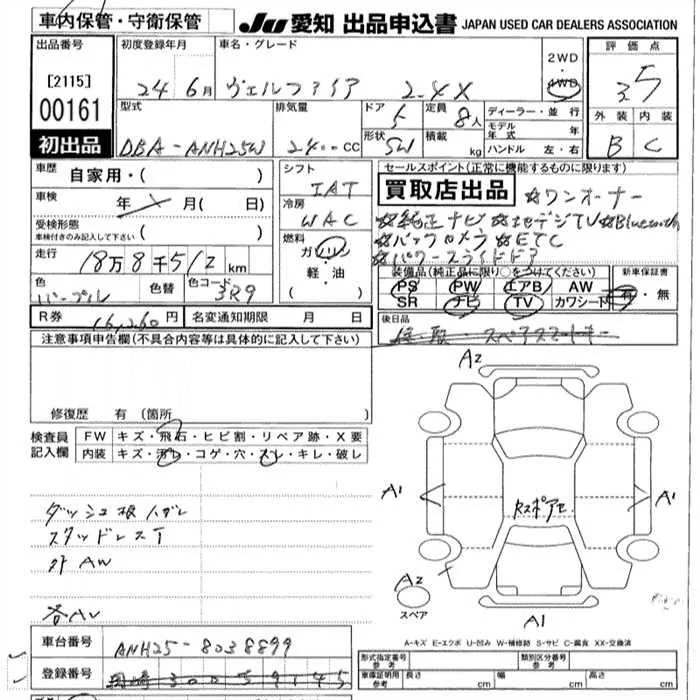 車内保管・守衛保管
JU 愛知 出品申込書 JAPAN USED CAR DEALERS ASSOCIATION
出品番号 初度登録年月 車名・グレード 2WD・4WD 評価点
[2115] 24年 6月 ヴェルファイア 2.4X 3.5
00161 型式 排気量 ドア 5 定員 8人 ディーラー・並行 外装 内装
初出品 DBA-ANH25W 2400cc 形状 SW 積載 kg モデル年式 年 B C
ハンドル 左・右
車歴 自家用・( ) シフト セールスポイント(正常に機能するものに限ります)
車検 年 月(日) IAT 買取店出品 ☆ワンオーナー
受検形態 冷房 ☆純正ナビ ☆地デジTV ☆Bluetooth
車検付きのみ記入して下さい ( ) WAC ☆バックカメラ ☆ETC
走行 18万8千512km 燃料 ガソリン ☆パワースライドドア
軽・油 装備品(純正品に限り○をつけてください) 新車保証書
色 パープル 色替 色コード 3R9 ( ) PS PW エアB AW 有・無
SR ナビ TV カワシート
R券 16,260円 名変通知期限 月 日 後日品
スペアスマートキー
注意事項申告欄(不具合内容等は具体的に記入して下さい)
修復歴 有(箇所 )
検査員記入欄 FW キズ・飛石・ヒビ割・リペア跡・X要
内装 キズ・汚レ・コゲ・穴・スレ・キレ・破レ
A2
A1 A1
ダッシュ板ハガレ
スタッドレスT
外AW
A2
スペア A1
A-キズ E-エクボ U-凹み W-補修跡 S-サビ C-腐食 XX-交換済
車台番号 ANH25-8038899
型式指定番号 参考 類別区分番号 参考
登録番号 岡崎 300 59145
車庫証明用 参考 長さ cm 幅 cm 高さ cm